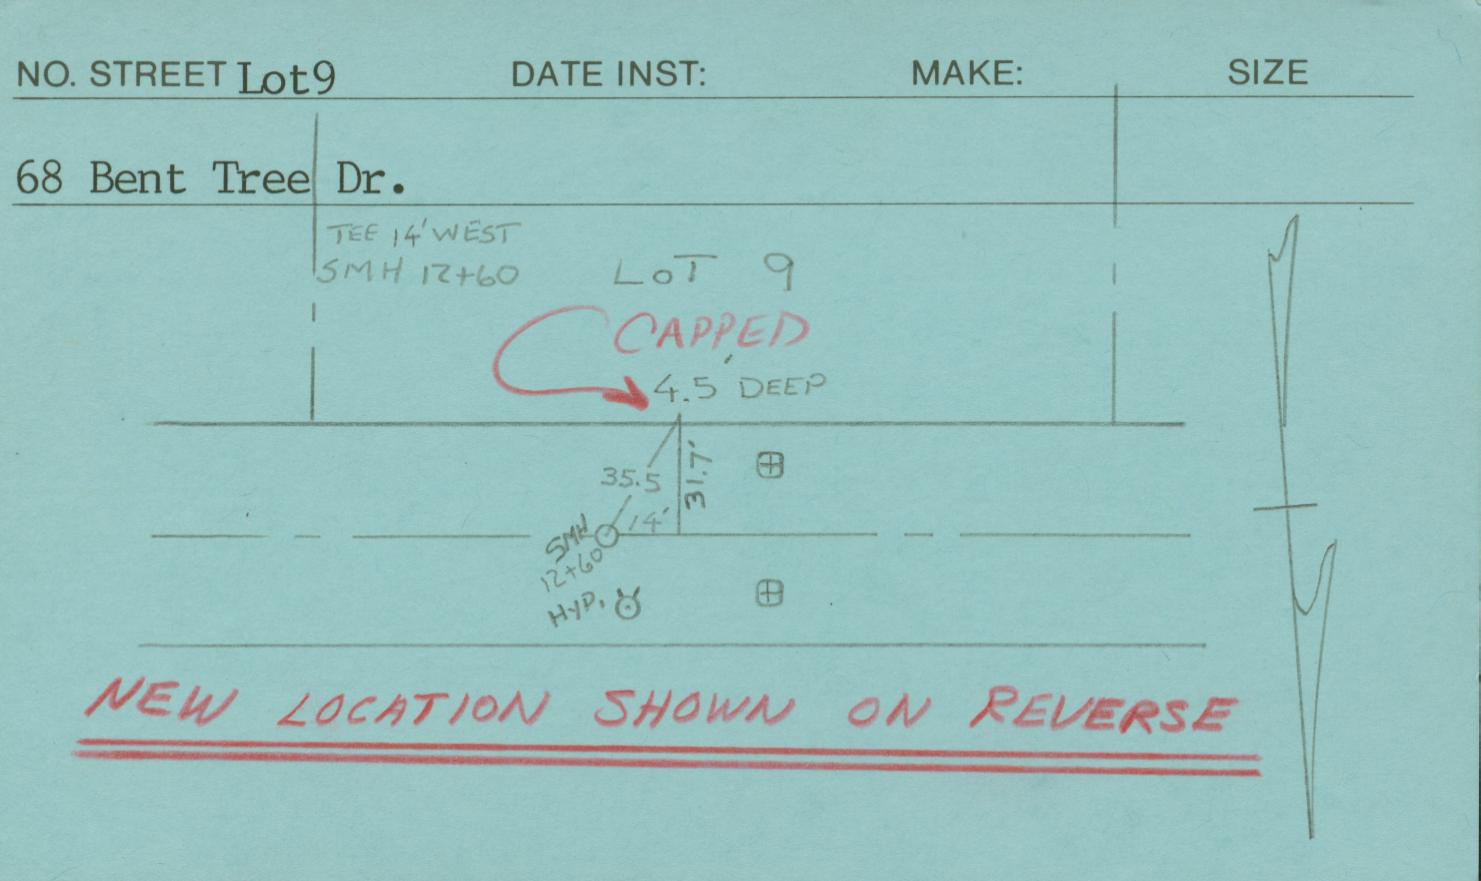 NO. STREET Lot9 DATE INST: MAKE: SIZE
68 Bent Tree Dr.
TEE 14' WEST
SMH 12+60
LOT 9
CAPPED
4.5' DEEP
35.5
31.7'
14'
SMH
12+60
HYD.
NEW LOCATION SHOWN ON REVERSE